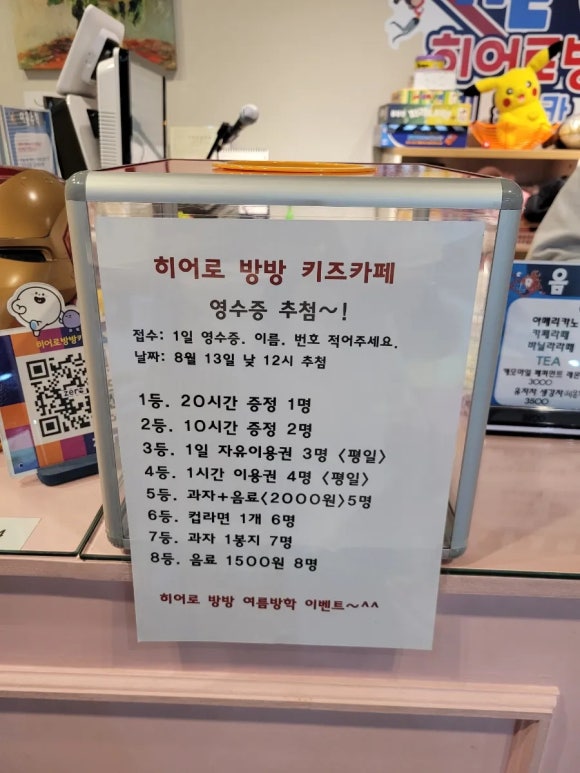 히어로방
히어로 방방 키즈카페
영수증 추첨~!
접수: 1일 영수증. 이름. 번호 적어주세요.
날짜: 8월 13일 낮 12시 추첨
1등. 20시간 증정 1명
2등. 10시간 증정 2명
3등. 1일 자유이용권 3명 <평일>
4등. 1시간 이용권 4명 <평일>
5등. 과자+음료<2000원>5명
6등. 컵라면 1개 6명
7등. 과자 1봉지 7명
8등. 음료 1500원 8명
히어로 방방 여름방학 이벤트~^^
히어로방방
zero
음
아메리카노
카페라떼
바닐라라떼
TEA
3000
3500